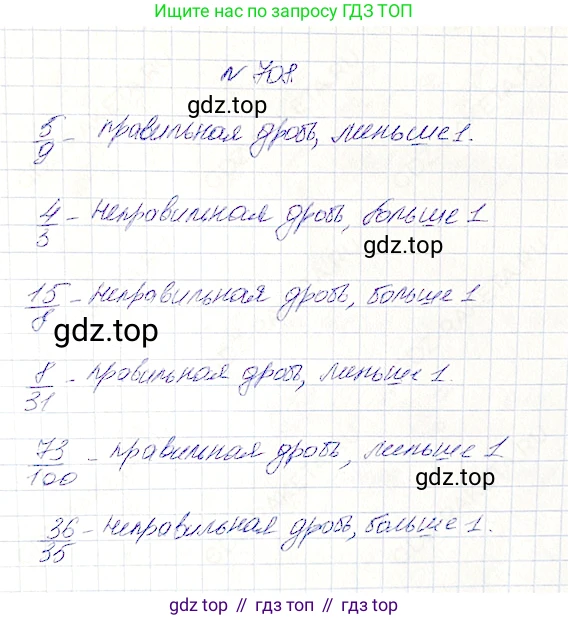 Ищите нас по запросу ГДЗ ТОП
№ 708.
gdz.top
5/9 - правильная дробь, меньше 1.
4/3 - неправильная дробь, больше 1
gdz.top
15/8 - неправильная дробь, больше 1
gdz.top
8/31 - правильная дробь, меньше 1.
73/100 - правильная дробь, меньше 1
gdz.top
36/35 - неправильная дробь, больше 1.
gdz top // гдз топ // gdz.top